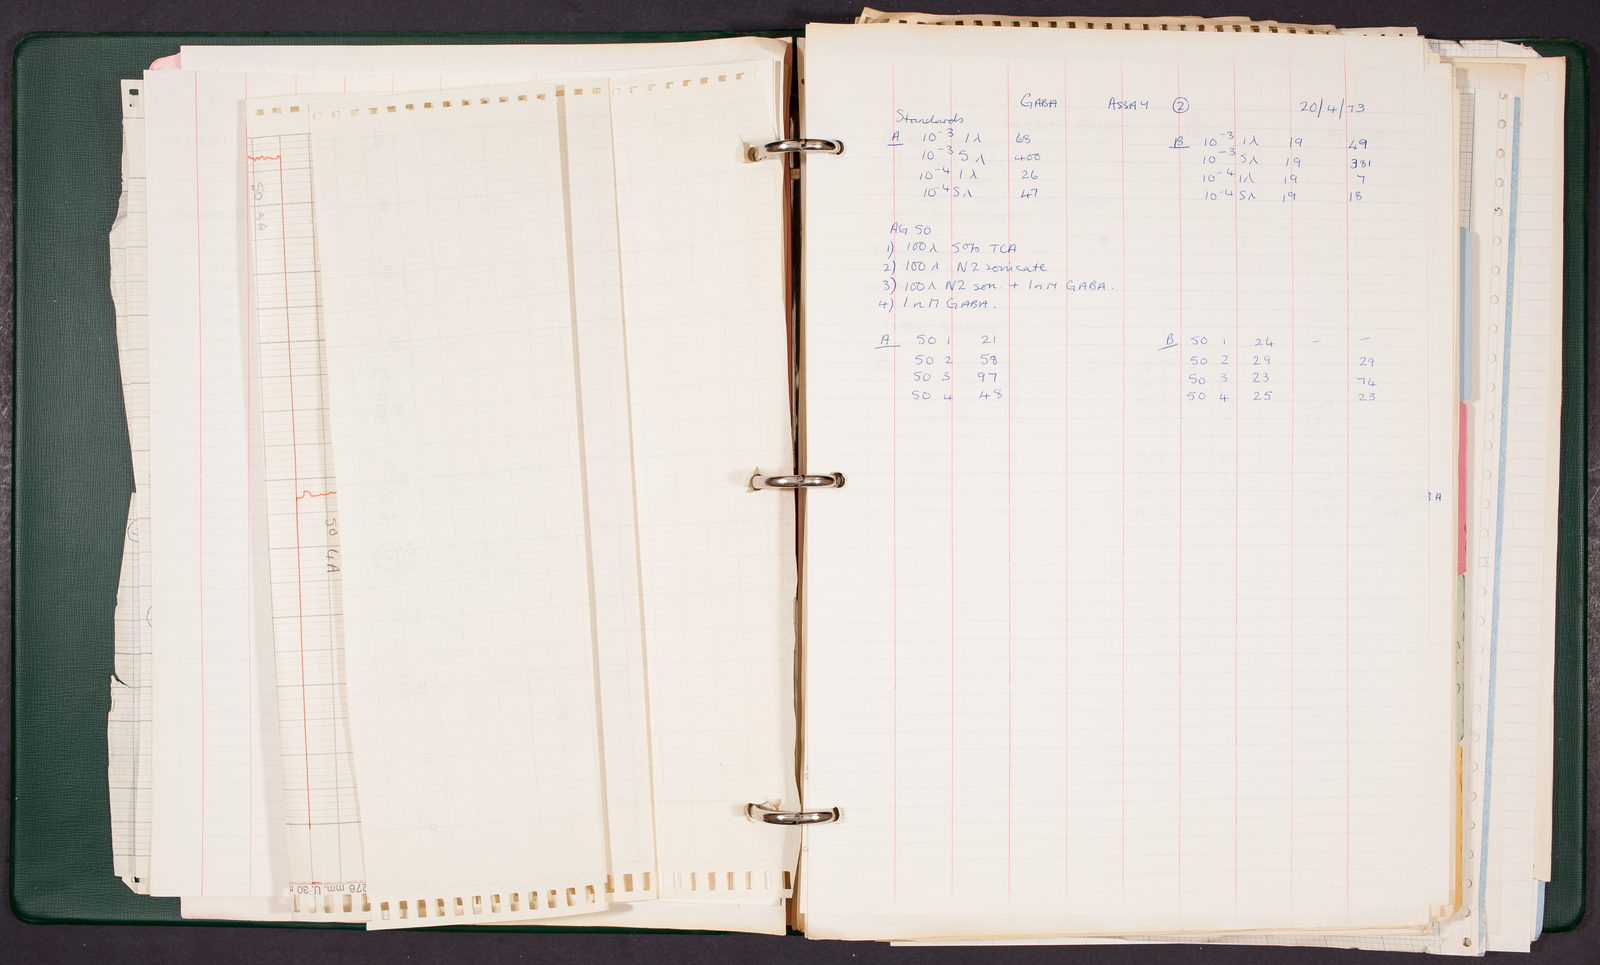 50 3A
50 4A
276 mm. U. 30
GABA ASSAY ② 20/4/73
Standards
A 10⁻³ 1λ 68
10⁻³ 5λ 400
10⁻⁴ 1λ 26
10⁻⁴ 5λ 47
B 10⁻³ 1λ 19 49
10⁻³ 5λ 19 381
10⁻⁴ 1λ 19 7
10⁻⁴ 5λ 19 18
AG 50
1) 100λ 50% TCA
2) 100λ N2 sonicate
3) 100λ N2 son. + 1nM GABA.
4) 1nM GABA.
A 50 1 21
50 2 58
50 3 97
50 4 48
B 50 1 24 - -
50 2 29 29
50 3 23 74
50 4 25 23